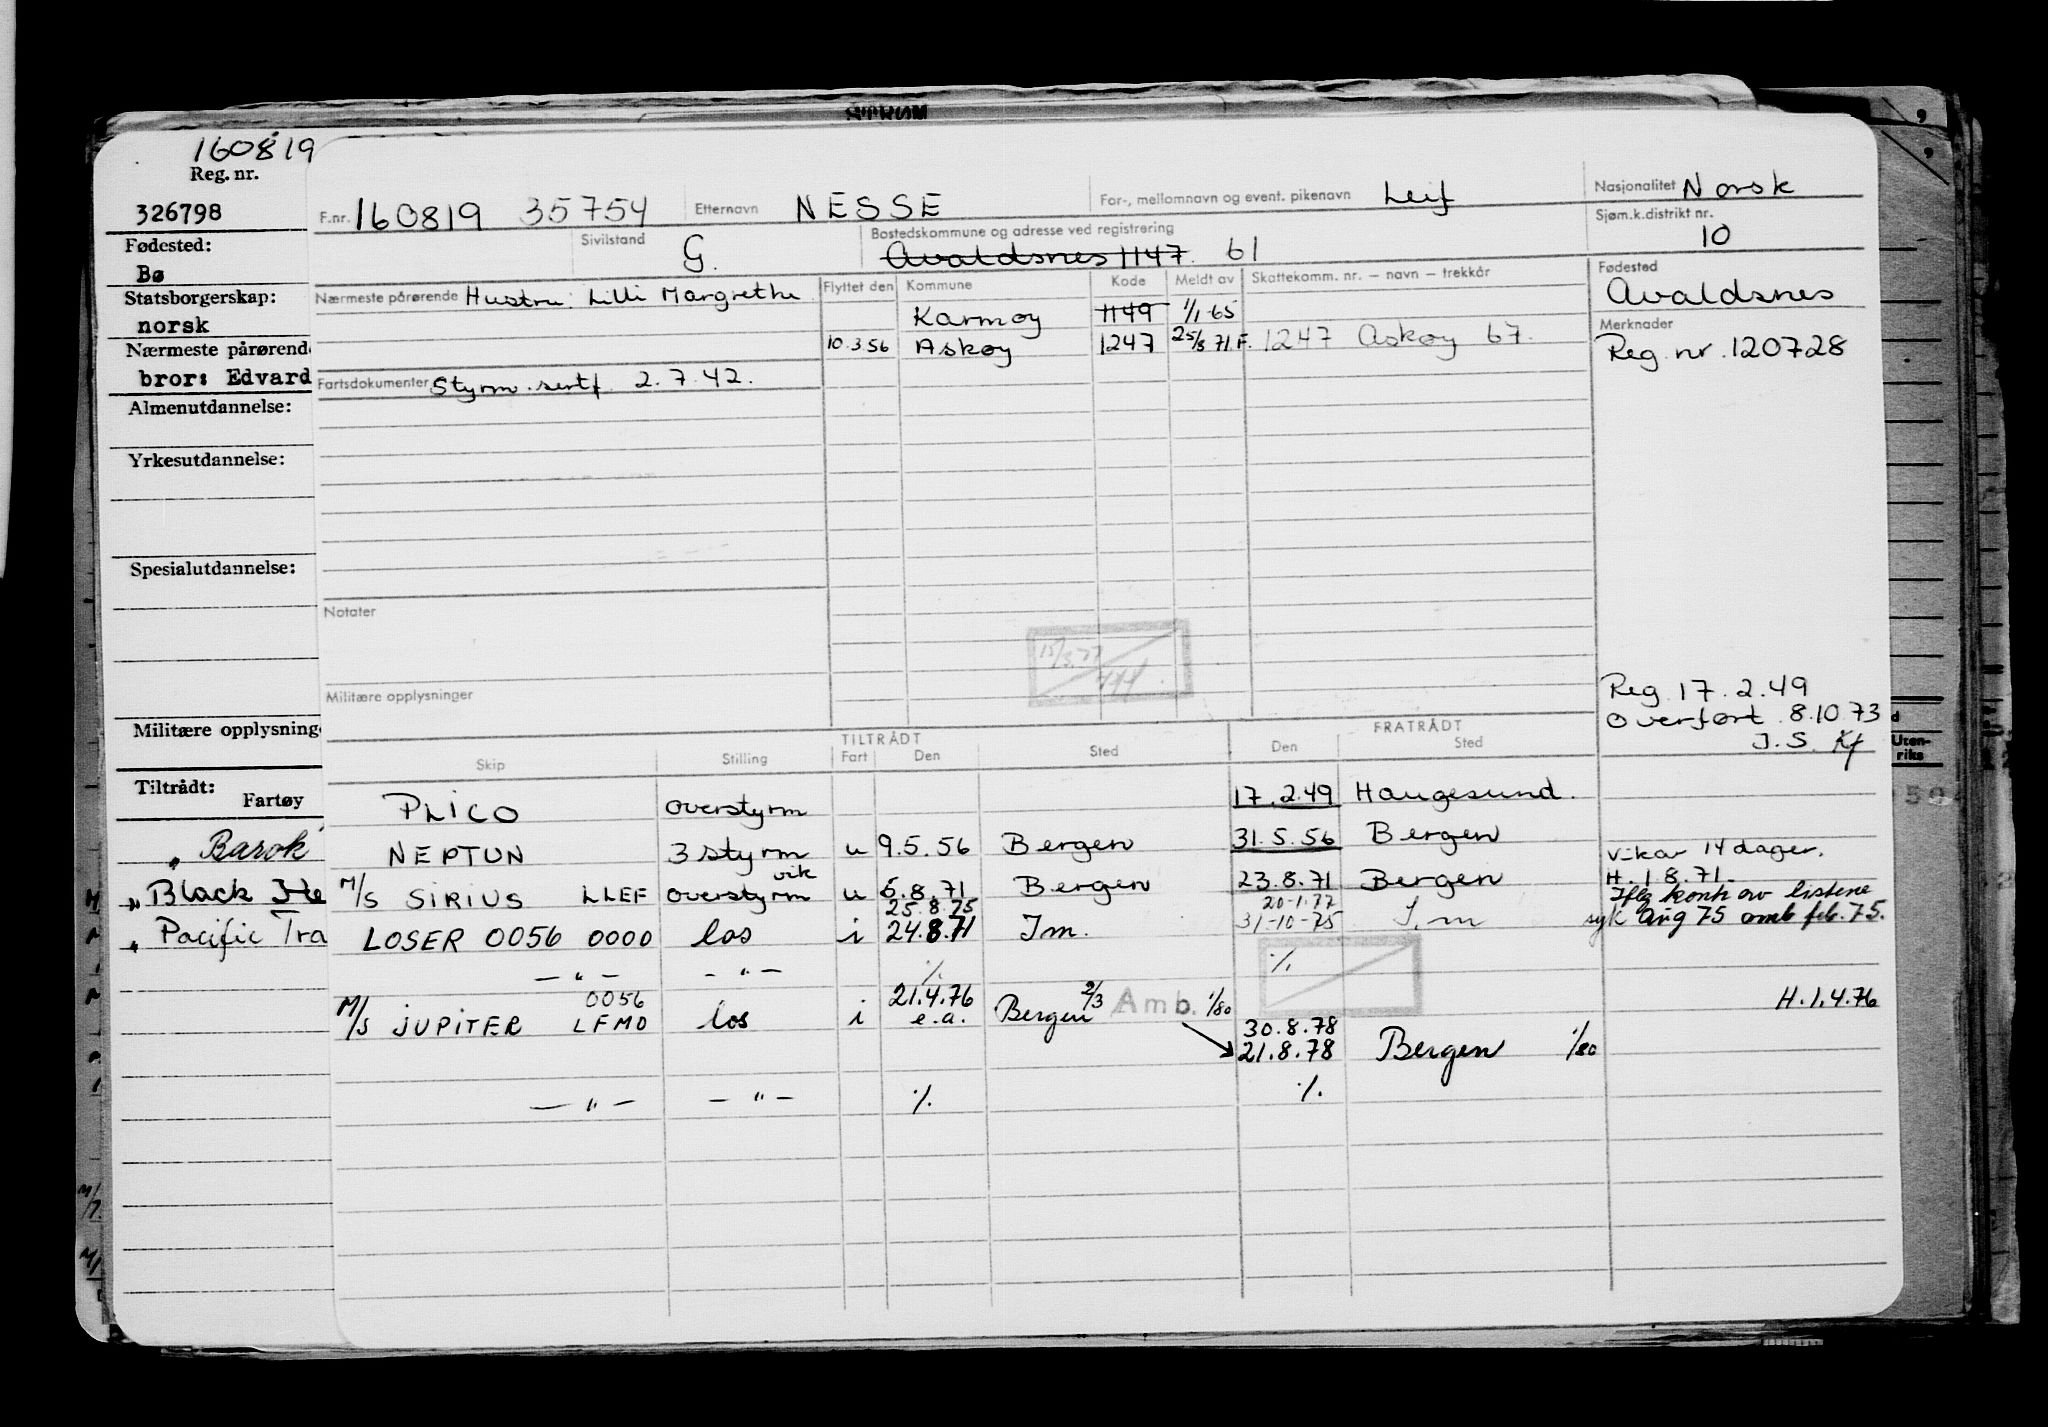 STRØM
160819
Reg. nr.
326798
Fødested:
Bø
Statsborgerskap:
norsk
Nærmeste pårørend
bror: Edvard
Almenutdannelse:
Yrkesutdannelse:
Spesialutdannelse:
Militære opplysning
Tiltrådt:
Fartøy
" Barok
" Black He
" Pacific Tra
F.nr. 160819 35754 Etternavn NESSE For-, mellomnavn og event. pikenavn Leif Nasjonalitet Norsk
Sivilstand G. Bostedskommune og adresse ved registrering Avaldsnes 1147. 61 Sjøm.k.distrikt nr. 10
Nærmeste pårørende Hustru: Lilli Margrethe Flyttet den Kommune Kode Meldt av Skattekomm. nr. – navn – trekkår Fødested
Avaldsnes
Karmøy 1149 1/1-65
Merknader
10.3.56 Askøy 1247 25/8 71 F. 1247 Askøy 67.
Reg. nr. 120728
Fartsdokumenter Styrm. sertf. 2.7.42.
Notater
15/3.77
Militære opplysninger
Reg. 17.2.49
Overført 8.10.73
J.S. Kf
TILTRÅDT FRATRÅDT
Skip Stilling Fart Den Sted Den Sted
PLICO overstyrm 17.2.49 Haugesund.
NEPTUN 3 styrm u 9.5.56 Bergen 31.5.56 Bergen
Vikar 14 dager.
vik
M/S SIRIUS LLEF overstyrm u 5.8.71 Bergen 23.8.71 Bergen H. 1.8.71.
25.8.75 20-1.77 Iflg kontr av listene
LOSER 0056 0000 los i 24.8.71 Im. 31-10-75 I.m syk Aug 75 omb feb. 75.
— " — - " - ./. ./.
0056 21.4.76 2/3 Amb. 1/80 H.1.4.76
M/S JUPITER LFMD los i e.a. Bergen 30.8.78
21.8.78 Bergen 1/80
— " — - " - ./. ./.
Uten-
riks